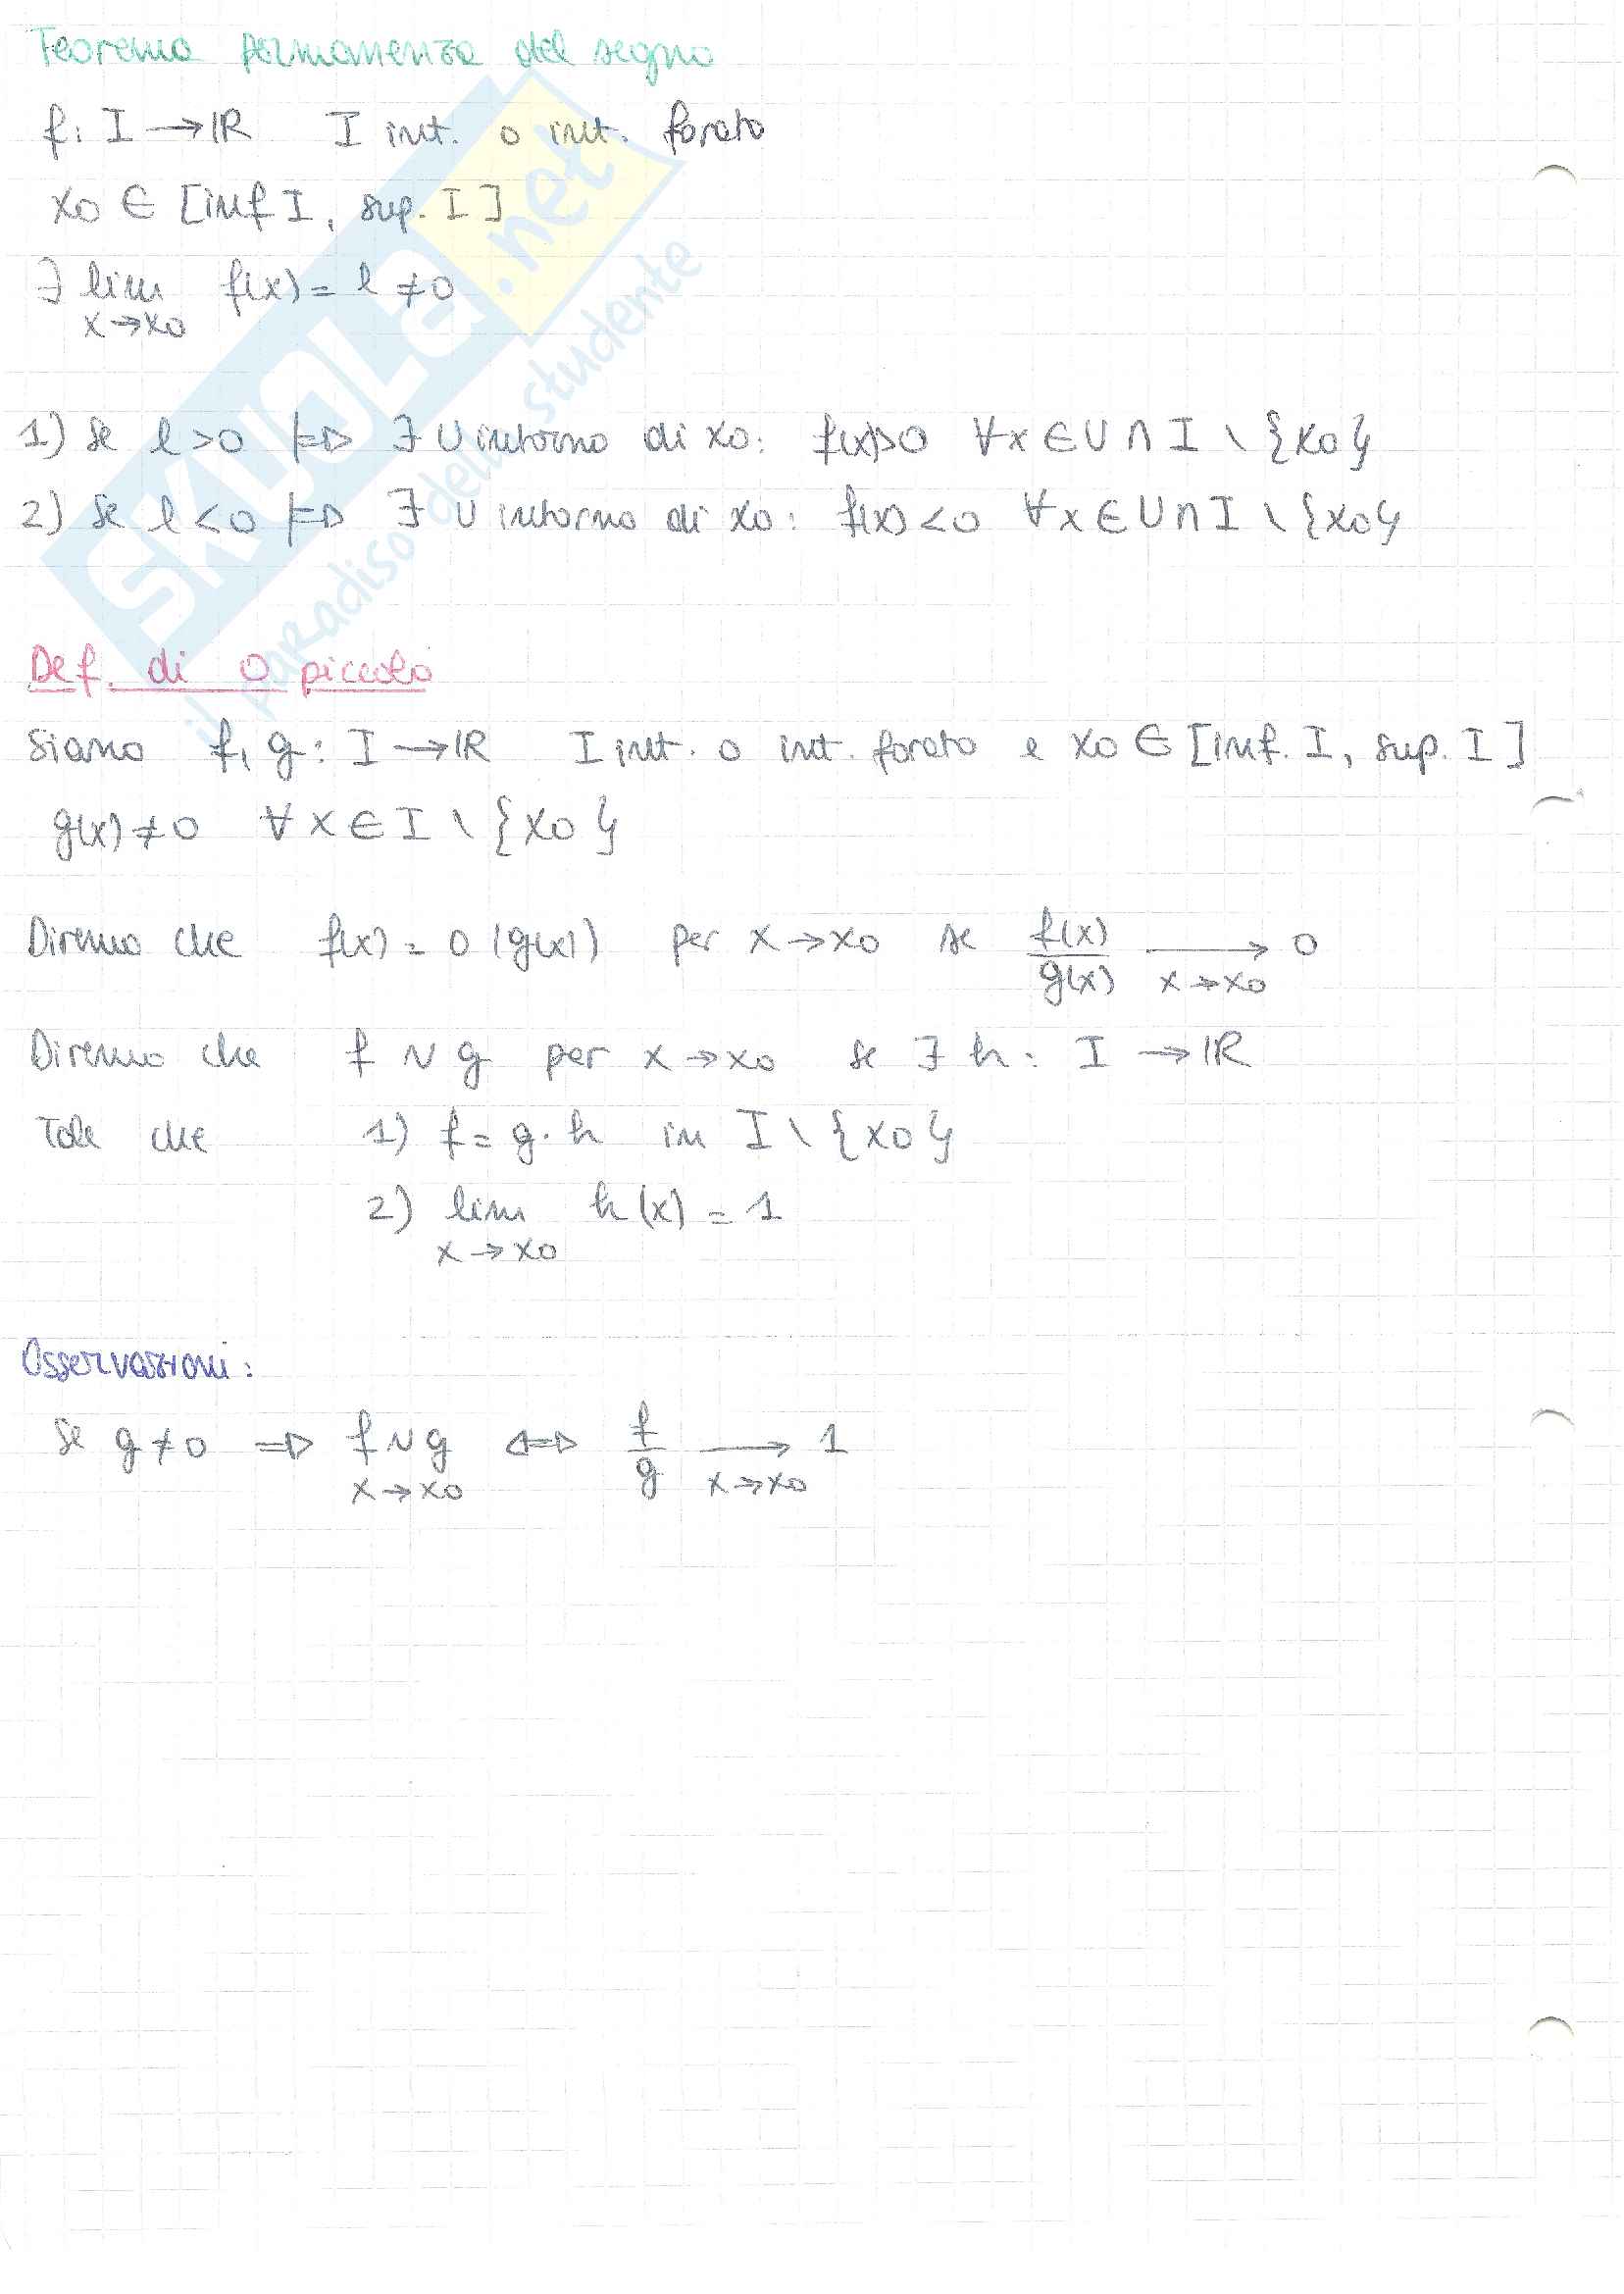 Teorema permanenza del segno
f: I → ℝ I int. o int. forato
x0 ∈ [inf I, sup. I]
∃ lim f(x) = l ≠ 0
x→x0
1) Se l > 0 |⇒ ∃ U intorno di x0: f(x)>0 ∀x ∈ U ∩ I \ {x0}
2) Se l < 0 |⇒ ∃ U intorno di x0: f(x) < 0 ∀x ∈ U ∩ I \ {x0}
Def. di o piccolo
Siano f, g: I → ℝ I int. o int. forato e x0 ∈ [inf. I, sup. I]
g(x) ≠ 0 ∀x ∈ I \ {x0}
Diremo che f(x) = o (g(x)) per x → x0 se f(x)/g(x) → 0
x→x0
Diremo che f ~ g per x → x0 se ∃ h: I → ℝ
Tale che 1) f = g · h in I \ {x0}
2) lim h(x) = 1
x→x0
Osservazioni:
Se g ≠ 0 ⇒ f ~ g ⇔ f/g → 1
x→x0 x→x0
SKUOLA.net
il paradiso dello studente